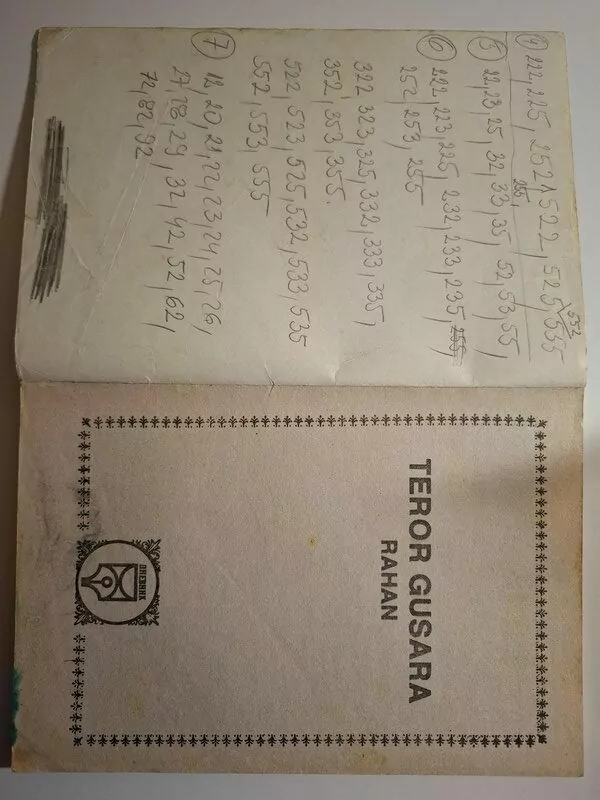 552
4 222, 225, 252, 522, 525, 535
255,
5 22, 23, 25, 32, 33, 35, 52, 53, 55,
6 222, 223, 225, 232, 233, 235,
252, 253, 255
322 323, 325, 332, 333, 335,
352, 353, 355.
522, 523, 525, 532, 533, 535
552, 553, 555
7 12, 20, 21, 22, 23, 24, 25, 26,
27, 28, 29, 32, 42, 52, 62,
72, 82, 92
TEROR GUSARA
RAHAN
ДНЕВНИК